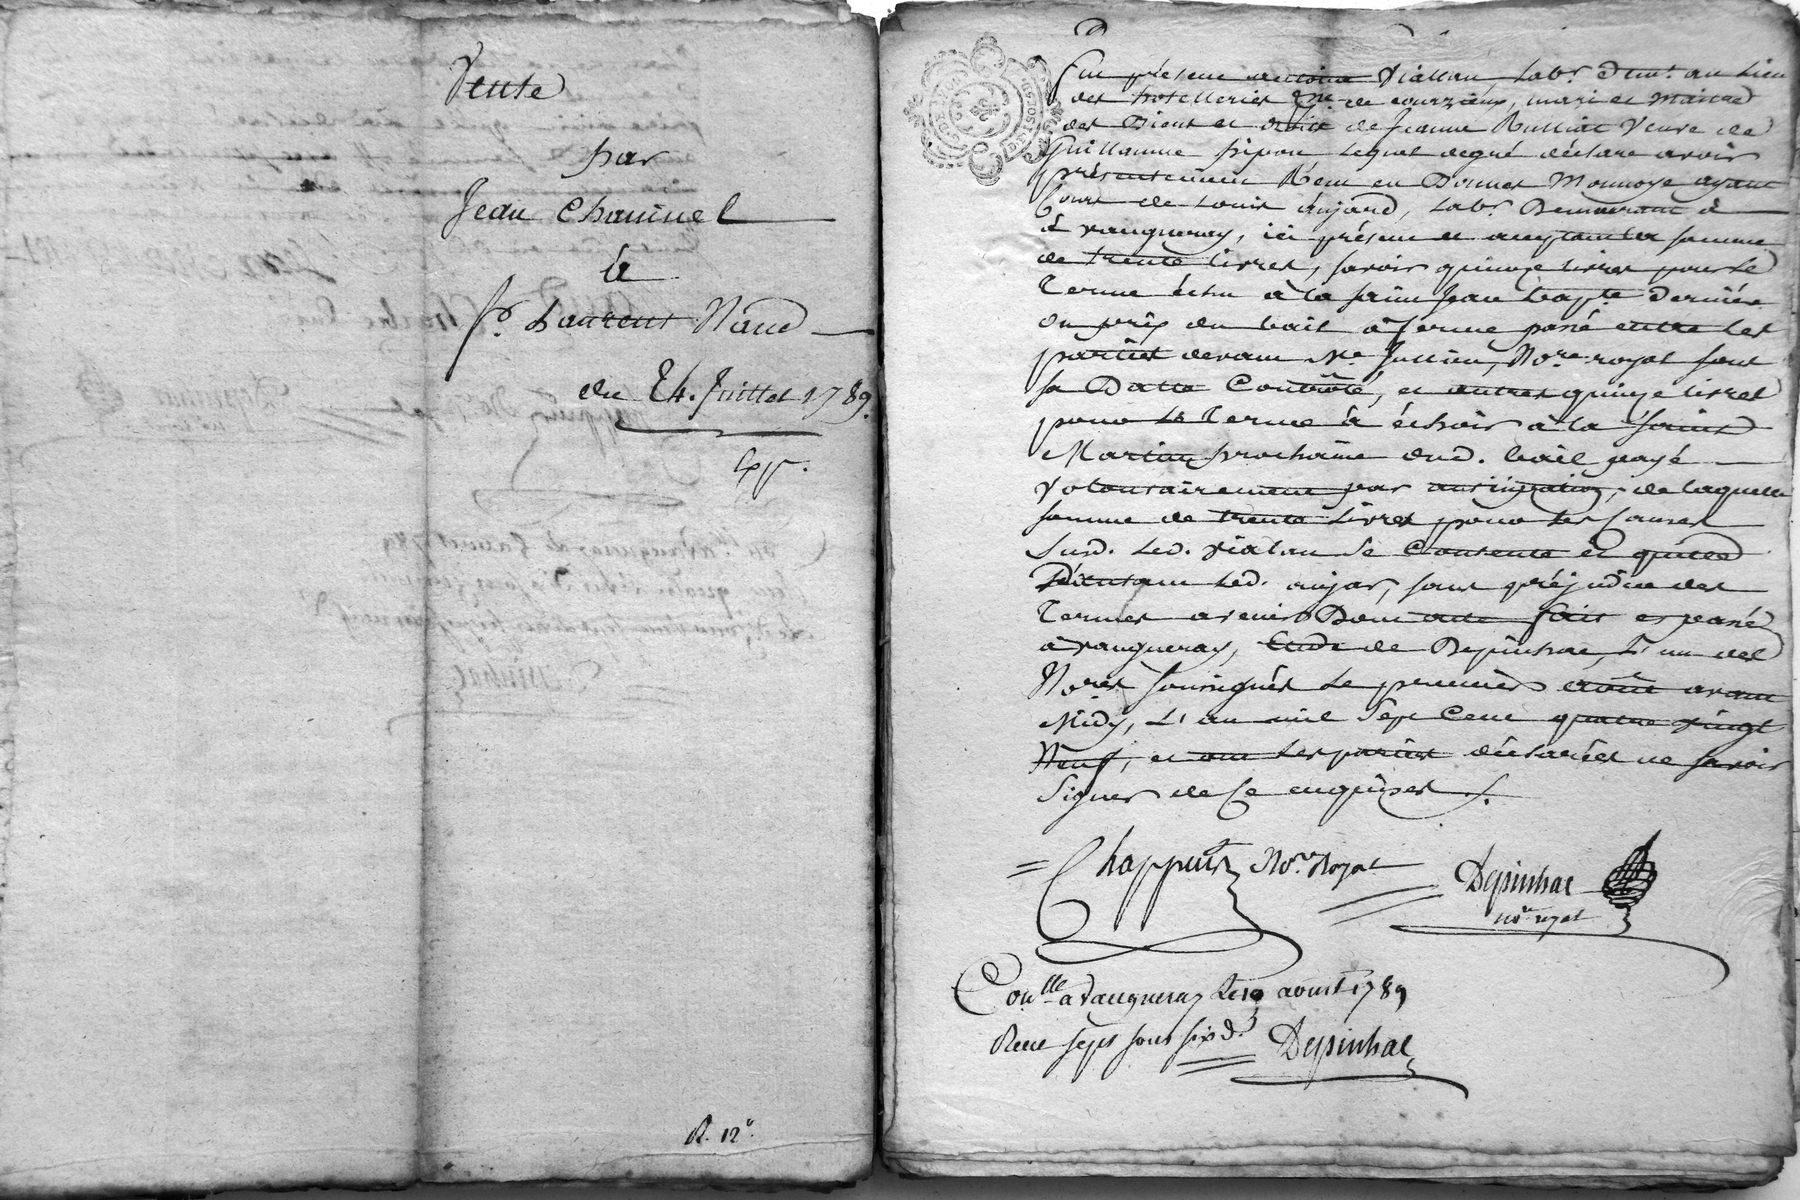 Vente
par
Jean Chauinel
à
Sr. Laurent Naud
du 24. Juillet 1789.
Exp.
R. 12s.
Fut présent Antoine Vialau Labr. demt. au Lieu
des hotelleries psse. de courzieux, mari et Maitre
des Biens et droits de Jeanne Rulliat veuve de
Guillaume pipon Lequel de gré déclare avoir
présentement Reçu en Bonnes Monnoye ayant
Cours de Louis aujard, Labr. Demeurant à
à vaugneray, ici présent et acceptant la somme
de trente livres, savoir quinze livres pour Le
Terme échu à la Saint Jean bapte. Dernière
du prix du bail à ferme passé entre les
parties devant Me. Jullien, Nore. royal sous
sa Datte Controllé, et autres quinze livres
pour Le Terme à échoir à la Saint
Martin prochaine dud. bail payé
volontairement par anticipation, de laquelle
somme de trente Livres pour les Causes
Susd. Led. vialau Se Contente et quitte
Led. aujar, sans préjudice des
Termes avenir Dont acte fait et passé
à vaugneray, Etude de Depinhac, L'un des
Nores. soussignés Le premier août avant
Midy, L'an mil Sept Cent quatre vingt
Neuf, et ont Les parties déclarées ne savoir
Signer de Ce enquises.
Chappuis Nore. Royal
Depinhac
nore. royal
Conlle à Vaugneray Le 12 aoust 1789
Recu sept sous six d. Depinhac